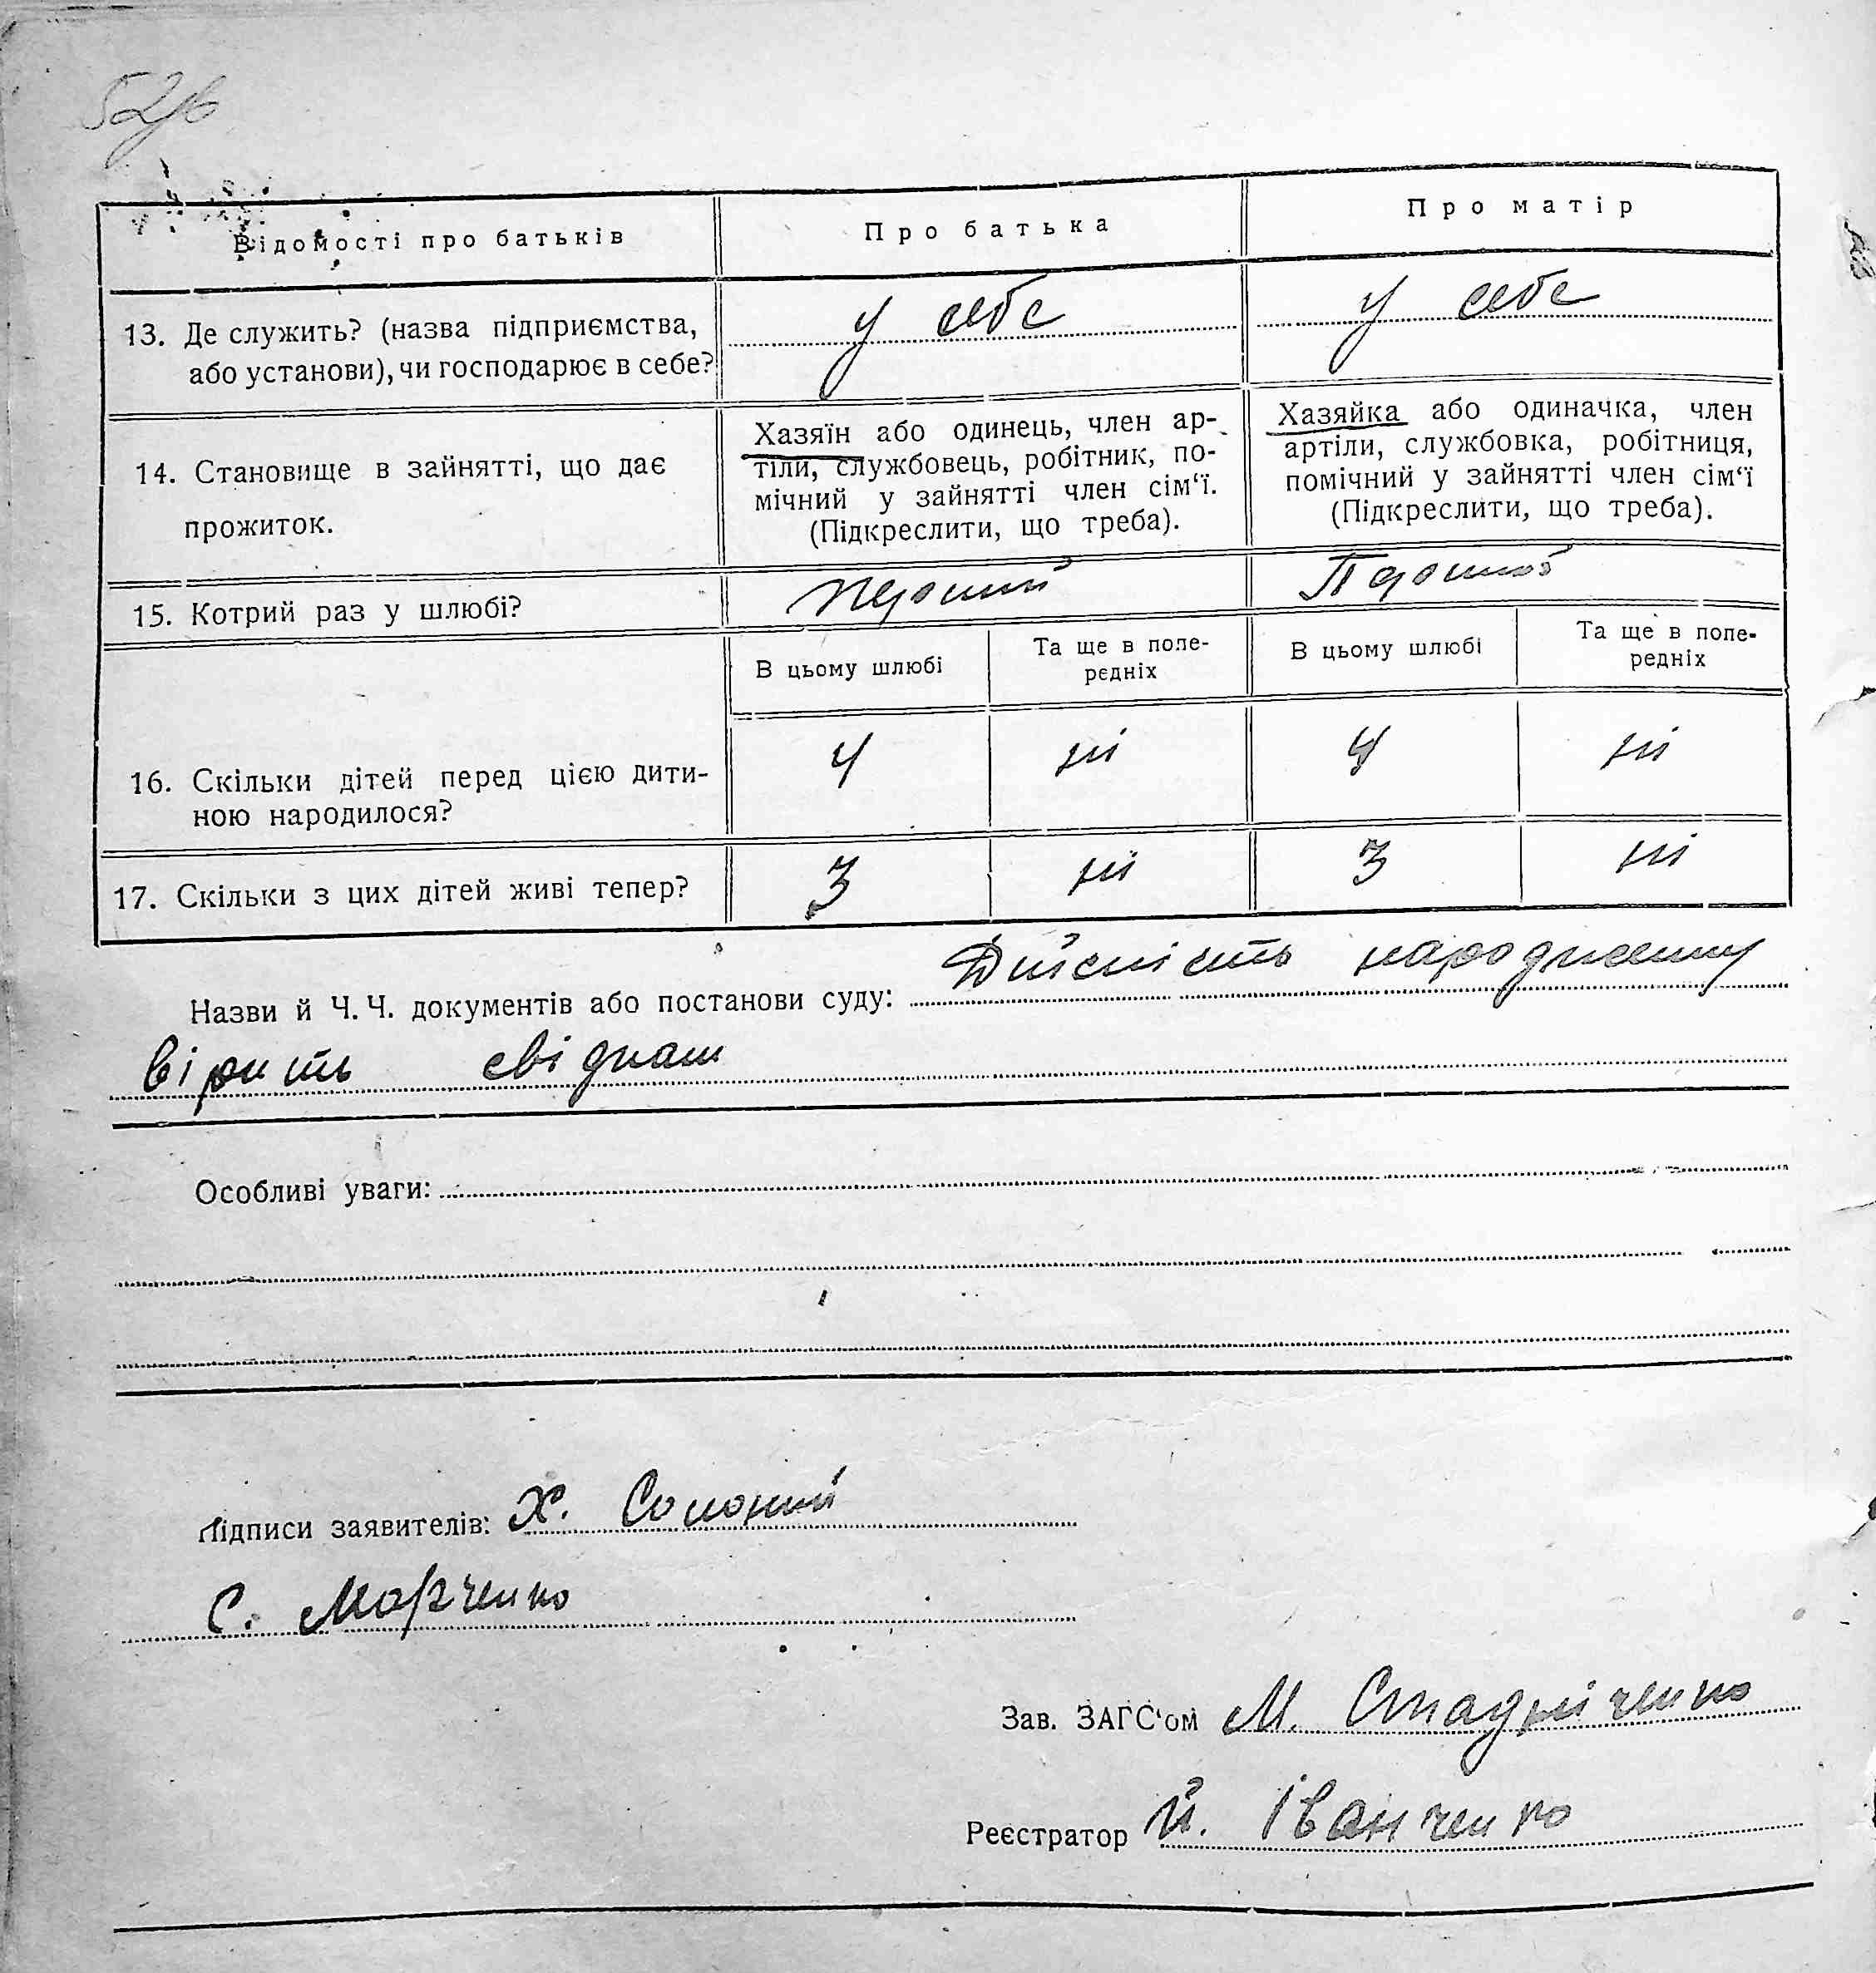 Відомості про батьків
Про батька
Про матір
13. Де служить? (назва підприємства,
або установи), чи господарює в себе?
у себе
у себе
14. Становище в зайнятті, що дає
прожиток.
Хазяїн або одинець, член ар-
тіли, службовець, робітник, по-
мічний у зайнятті член сім‘ї.
(Підкреслити, що треба).
Хазяйка або одиначка, член
артіли, службовка, робітниця,
помічний у зайнятті член сім‘ї
(Підкреслити, що треба).
15. Котрий раз у шлюбі?
Перший
Перший
В цьому шлюбі
Та ще в попе-
редніх
В цьому шлюбі
Та ще в попе-
редніх
16. Скільки дітей перед цією дити-
ною народилося?
4
ні
4
ні
17. Скільки з цих дітей живі тепер?
3
ні
3
ні
Назви й Ч. Ч. документів або постанови суду: Дійсність народження
вірить свідкам
Особливі уваги:
Підписи заявителів: Х. Солоний
С. Марченко
Зав. ЗАГС‘ом М. Стадніченко
Реєстратор Й. Іванченко